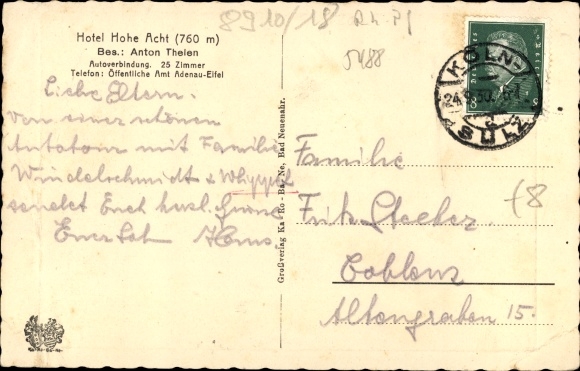 8910/18 Rh Pf
5488
Hotel Hohe Acht (760 m)
Bes.: Anton Thelen
Autoverbindung. 25 Zimmer
Telefon: Öffentliche Amt Adenau-Eifel
Liebe Eltern.
Von einer schönen
Autotour mit Familie
Windelschmidt &
sendet Euch herzl. Grüsse
Euer Hans
Großverlag Ka-Ro-Ba-Ne, Bad Neuenahr.
KÖLN
SÜLZ
8 8
Familie
Fritz Stecker
Coblenz
Altengraben 15.
Ka-Ro-Ba-Ne